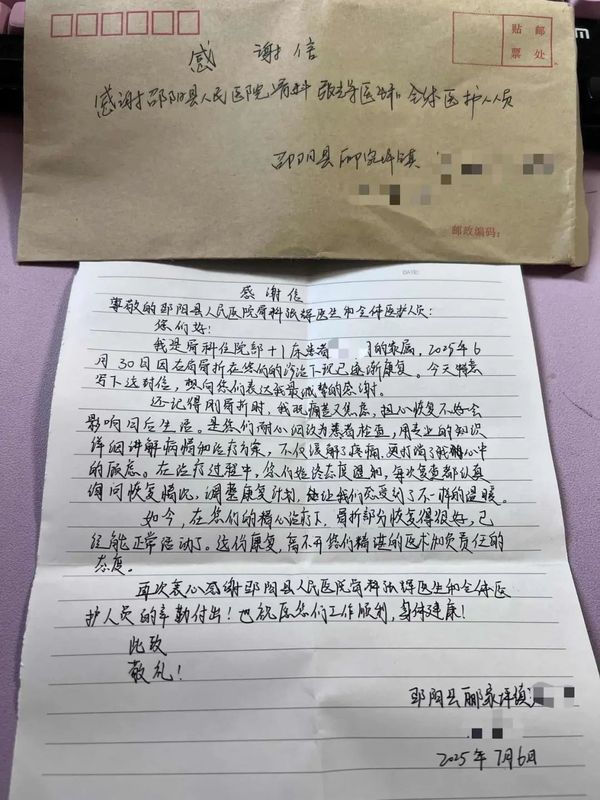 贴 邮
票 处
感 谢 信
感谢邵阳县人民医院骨科 张辉医师,全体医护人员
邵阳县郦家坪镇
邮政编码:
DATE:
感谢信
尊敬的邵阳县人民医院骨科张辉医生和全体医护人员:
您们好!
我是骨科住院部+1床患者 的家属,2025年6
月30日因右肩骨折在您们的诊治下现已逐渐康复。今天特意
写下这封信,想向您们表达我最诚挚的感谢。
还记得刚骨折时,我既痛苦又焦虑,担心恢复不好会
影响日后生活。是您们耐心细致为患者检查,用专业的知识
详细讲解病情和治疗方案,不仅缓解了疼痛,更打消了我心中
的顾虑。在治疗过程中,您们始终态度温和,每次复查都认真
询问恢复情况,调整康复计划,让我们感受到了不一样的温暖。
如今,在您们的精心治疗下,骨折部分恢复得很好,已
经能正常活动了。这份康复,离不开您们精湛的医术和负责任的
态度。
再次衷心感谢邵阳县人民医院骨科张辉医生和全体医
护人员的辛勤付出!也祝愿您们工作顺利,身体健康!
此致
敬礼!
邵阳县郦家坪镇
2025年7月6日